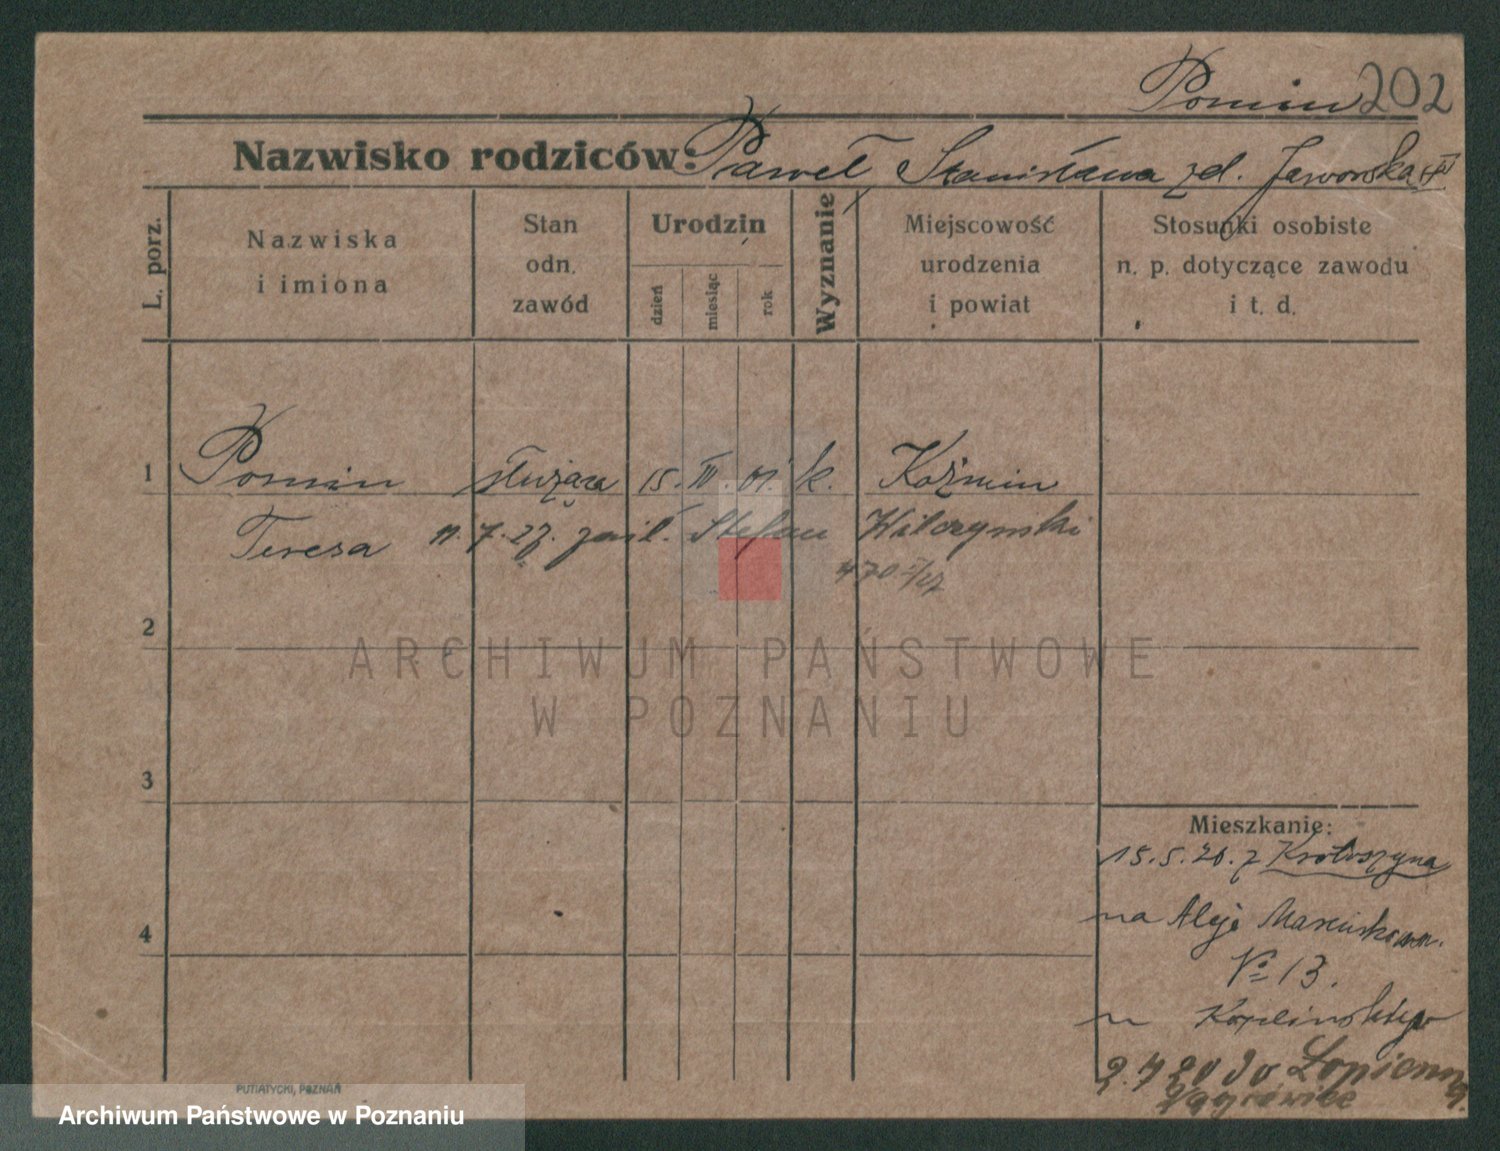 Pomin 202
Nazwisko rodziców: Paweł Stanisława zd. Jaworska
L. porz.
Nazwiska
i imiona
Stan
odn.
zawód
Urodzin
dzień
miesiąc
rok
Wyznanie
Miejscowość
urodzenia
i powiat
Stosunki osobiste
n. p. dotyczące zawodu
i t. d.
1 Pomin służąca 15. IV. 01. k. Koźmin
Teresa 11.7.27. zaśl. Stefan Wilczyński
470
2
ARCHIWUM PAŃSTWOWE
W POZNANIU
3
Mieszkanie:
15.5.20. z Krotoszyna
4
na Aleje Marcinkowsk.
No 13.
u Koplińskiego
2.7 20 do Łopienna
Wągrówiec
PUTIATYCKI, POZNAŃ
Archiwum Państwowe w Poznaniu